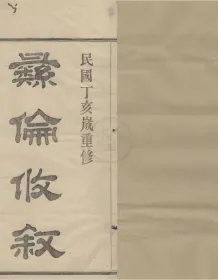 民國丁亥歲重修
彝倫攸敘